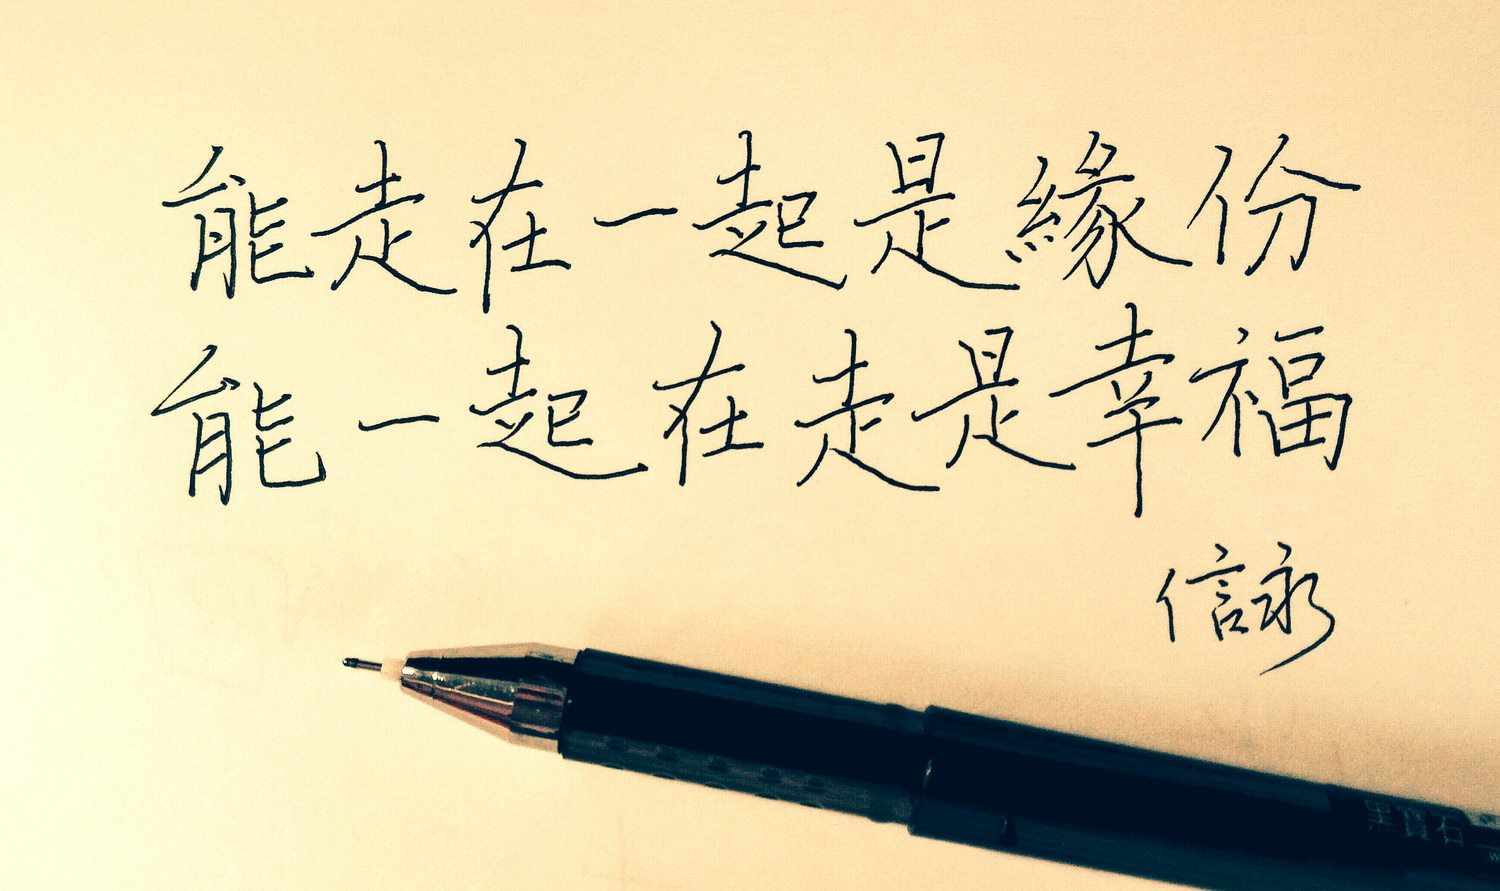 能走在一起是緣份
能一起在走是幸福
信永
黑寶石